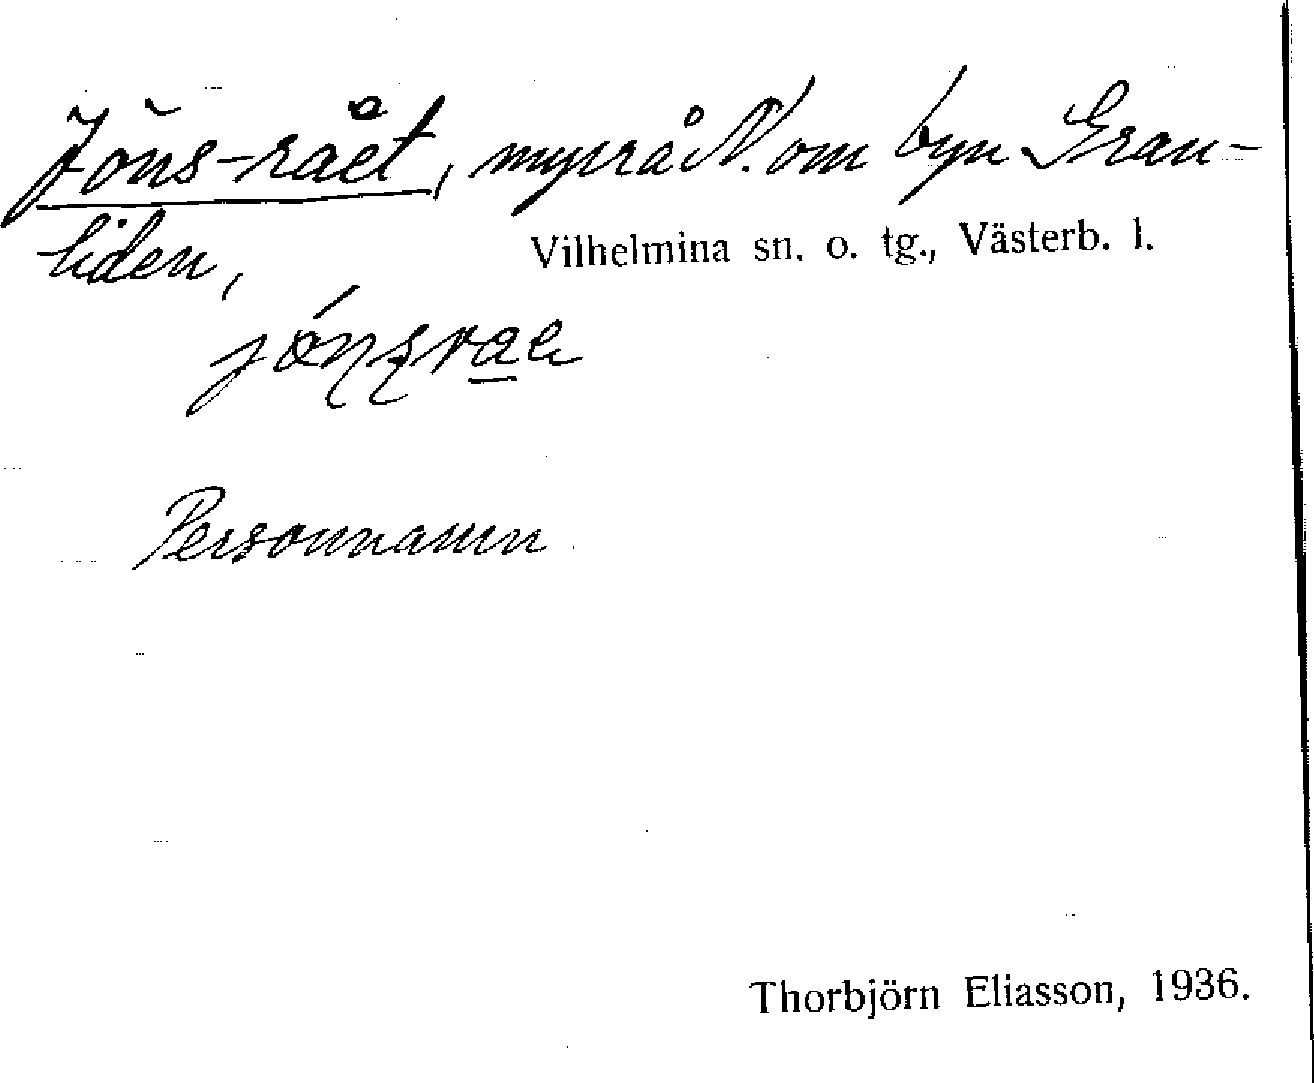 Jöns-rået, myrrå N. om byn Gran-
liden,
Vilhelmina sn. o. tg., Västerb. l.
Personnamn
Thorbjörn Eliasson, 1936.